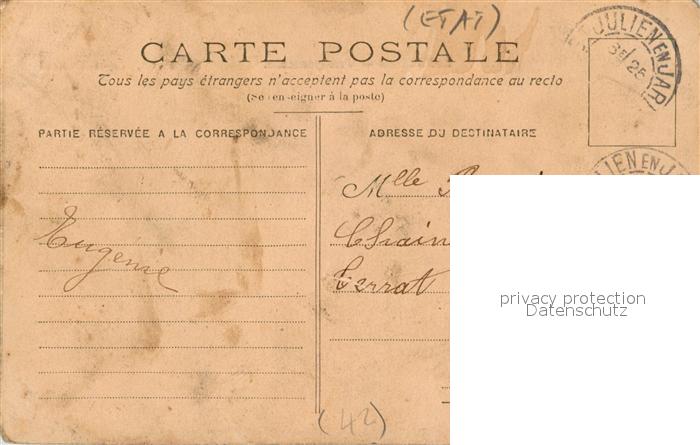 (ETAT)
CARTE POSTALE
Tous les pays étrangers n'acceptent pas la correspondance au recto
(Se ren-eigner à la poste)
JULIEN EN JAR
PARTIE RÉSERVÉE A LA CORRESPONDANCE
ADRESSE DU DESTINATAIRE
LIEN EN JA
Mlle
Eugénie
Terrat
privacy protection
Datenschutz
(42)